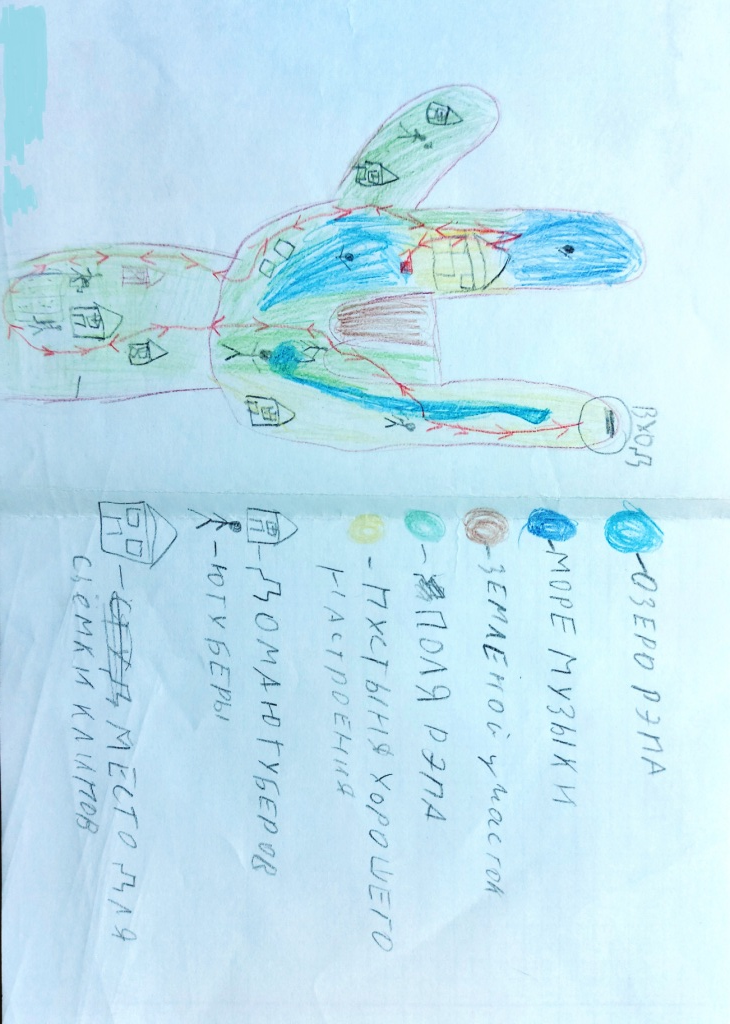 ВХОД
ОЗЕРО РЭПА
МОРЕ МУЗЫКИ
ЗЕМЛЕНОЙ участок
ПОЛЯ РЭПА
- ПУСТЫНЯ ХОРОШЕГО
НАСТРОЕНИЯ
- ДОМА ЮТУБЕРОВ
- ЮТУБЕРЫ
- МЕСТО ДЛЯ
СЬЕМКИ КЛИПОВ